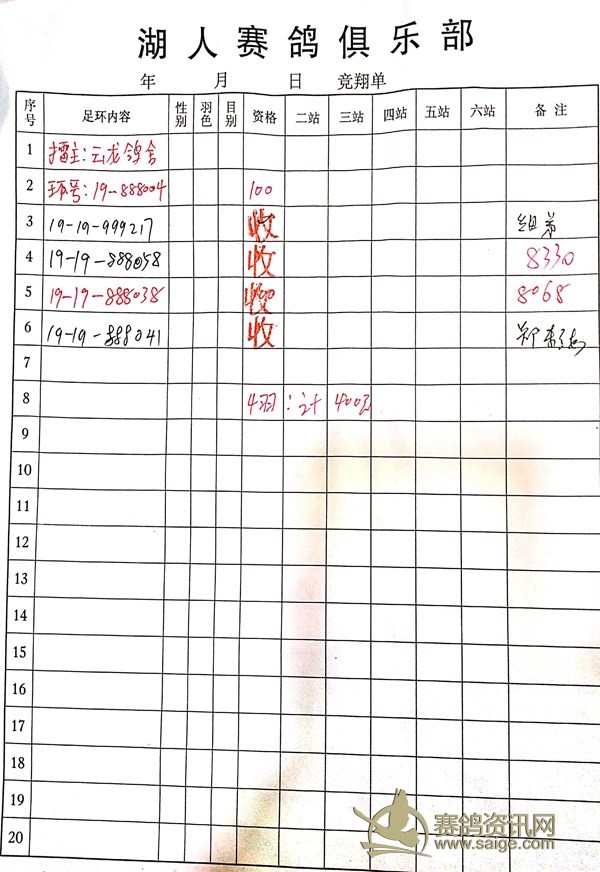 湖人赛鸽俱乐部
年 月 日 竞翔单
序号 足环内容 性别 羽色 目别 资格 二站 三站 四站 五站 六站 备注
1 擂主:云龙鸽舍
2 环号:19-888004 100
3 19-19-999217 收
4 19-19-888058 收 8330
5 19-19-888038 收 8068
6 19-19-888041 收
7
8 4羽:计 400元
9
10
11
12
13
14
15
16
17
18
19
20
赛鸽资讯网
www.saige.com